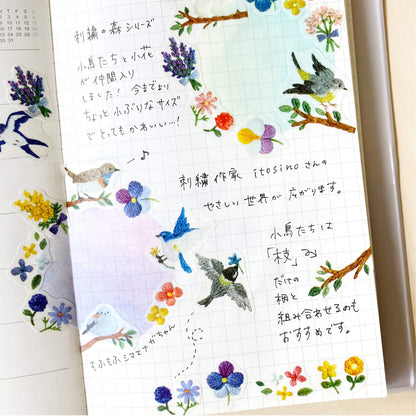 刺繍の森シリーズ
小鳥たちと小花
が仲間入り
しました! 今までより
ちょっと小ぶりなサイズ
でとってもかわいい…!
刺繍作家 itosinoさんの
やさしい世界が広がります。
小鳥たちは
「枝」
だけの
柄と
組み合わせるのも
おすすめです。
もふもふシマエナガちゃん